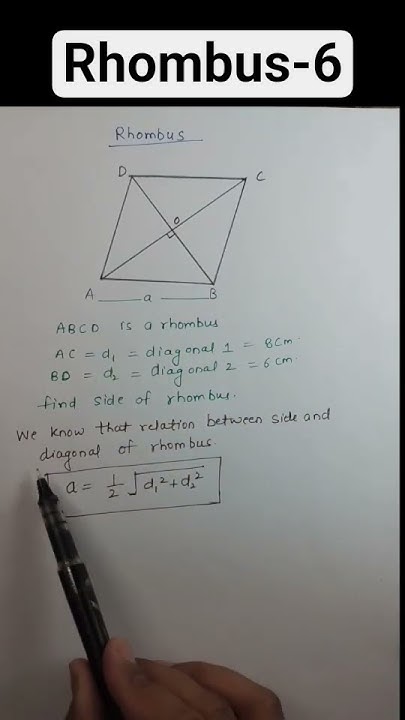 Rhombus-6
Rhombus
D
C
O
A a B
ABCD is a rhombus
AC = d₁ = diagonal 1 = 8cm.
BD = d₂ = diagonal 2 = 6cm.
find side of rhombus.
We know that relation between side and
diagonal of rhombus.
a = 1/2 √(d₁² + d₂²)